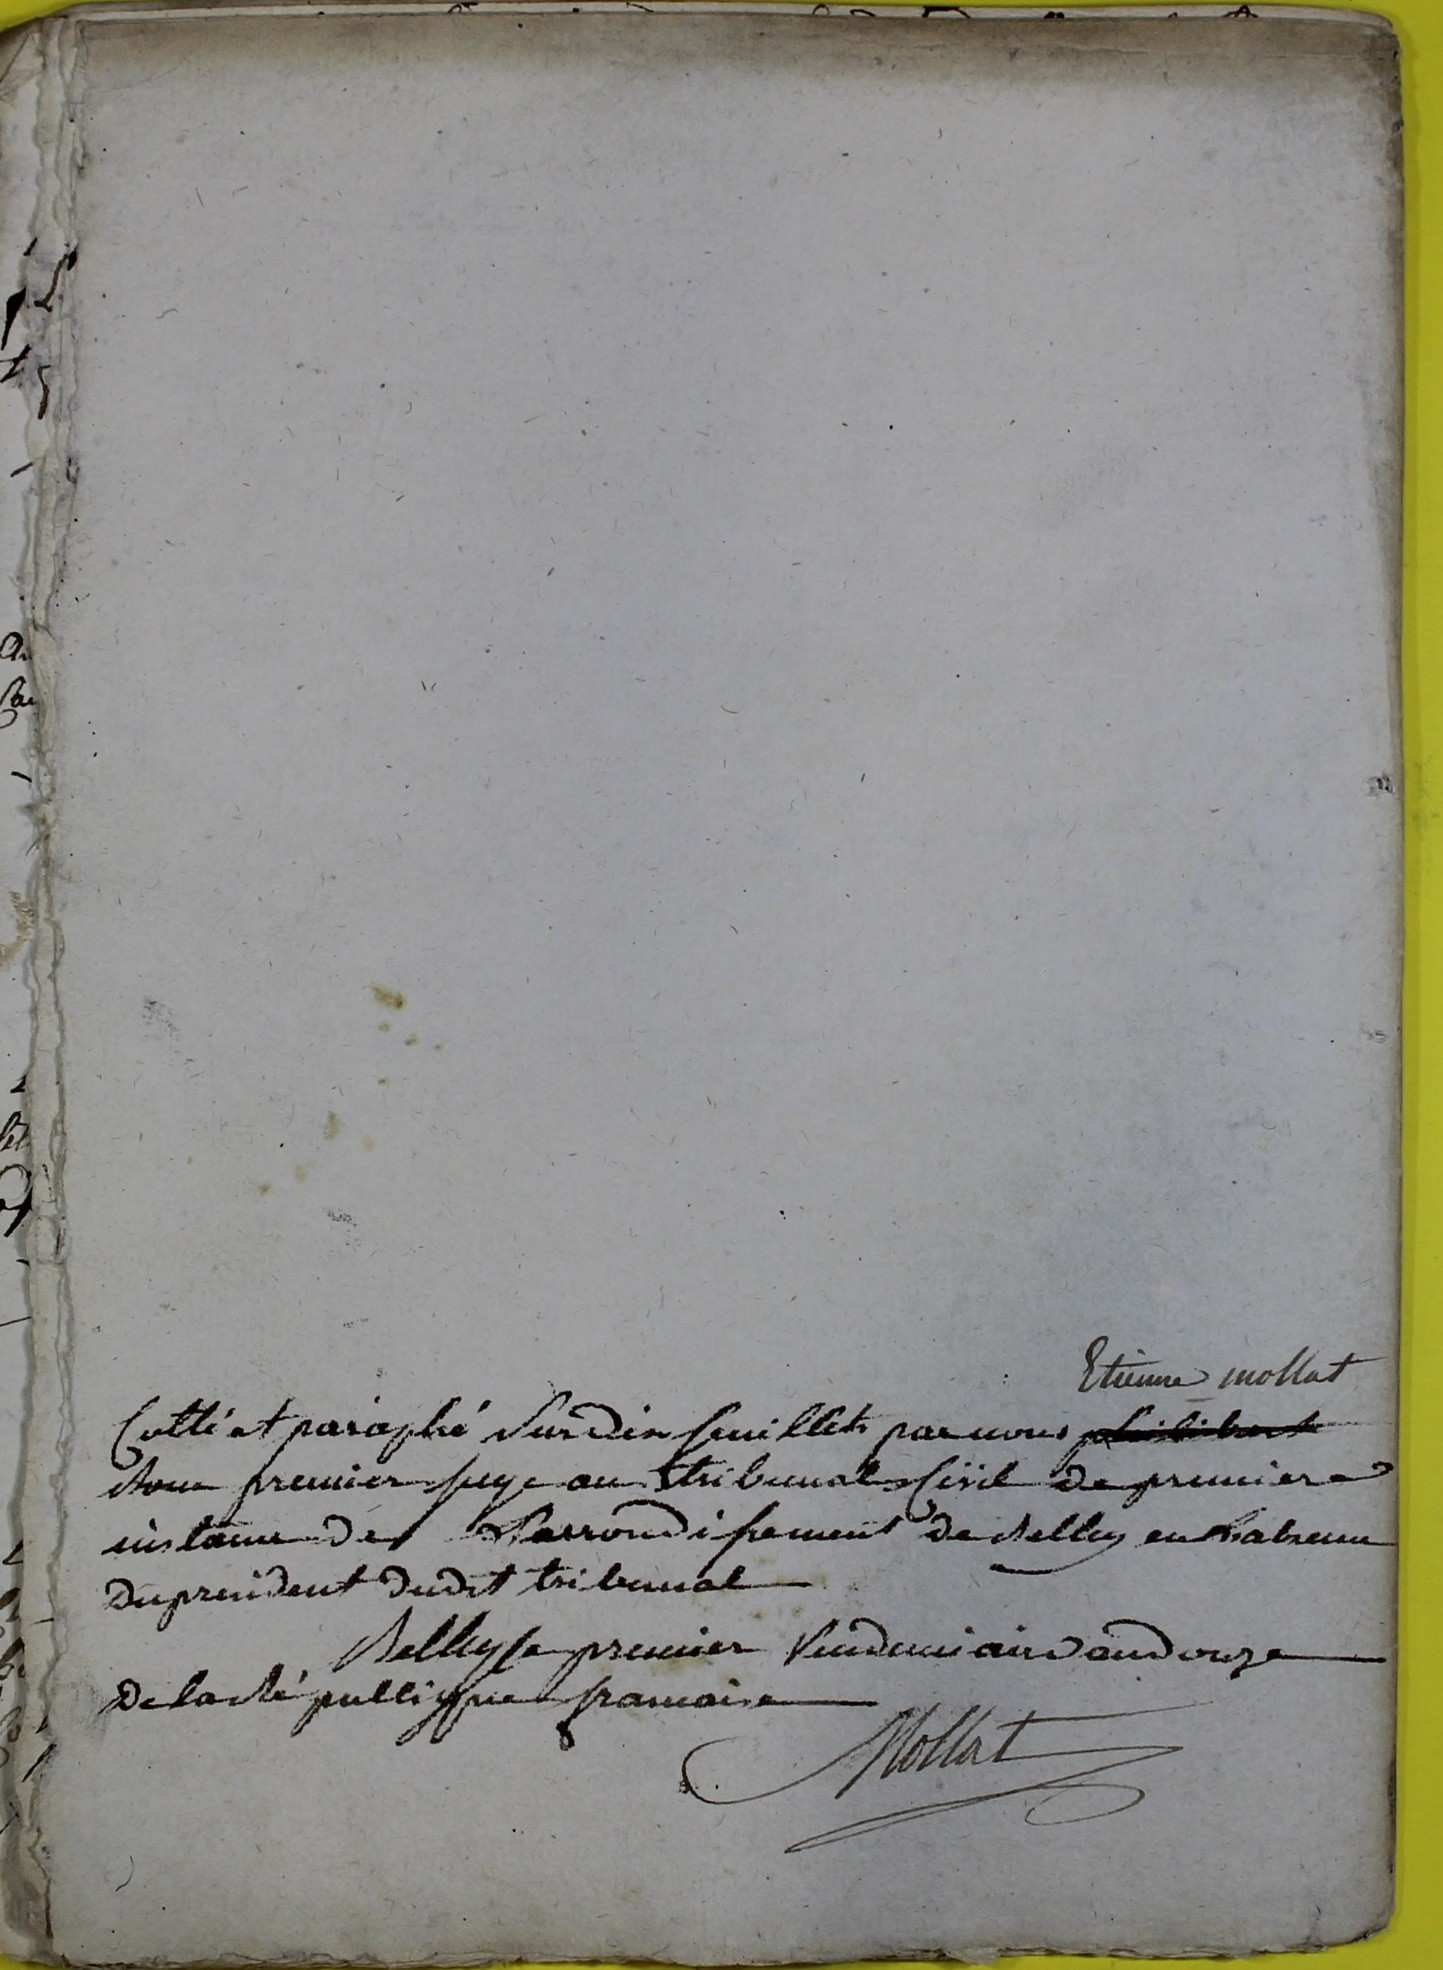 Etienne mollat
Cotté et paraphé sur dix feuillets par nous philibert
premier juge au tribunal Civil de premiere
instance de L'arrondissement de Belley en l'absence
du president dudit tribunal
Belley le premier Vendemiaire an douze
de la République francaise
Mollat